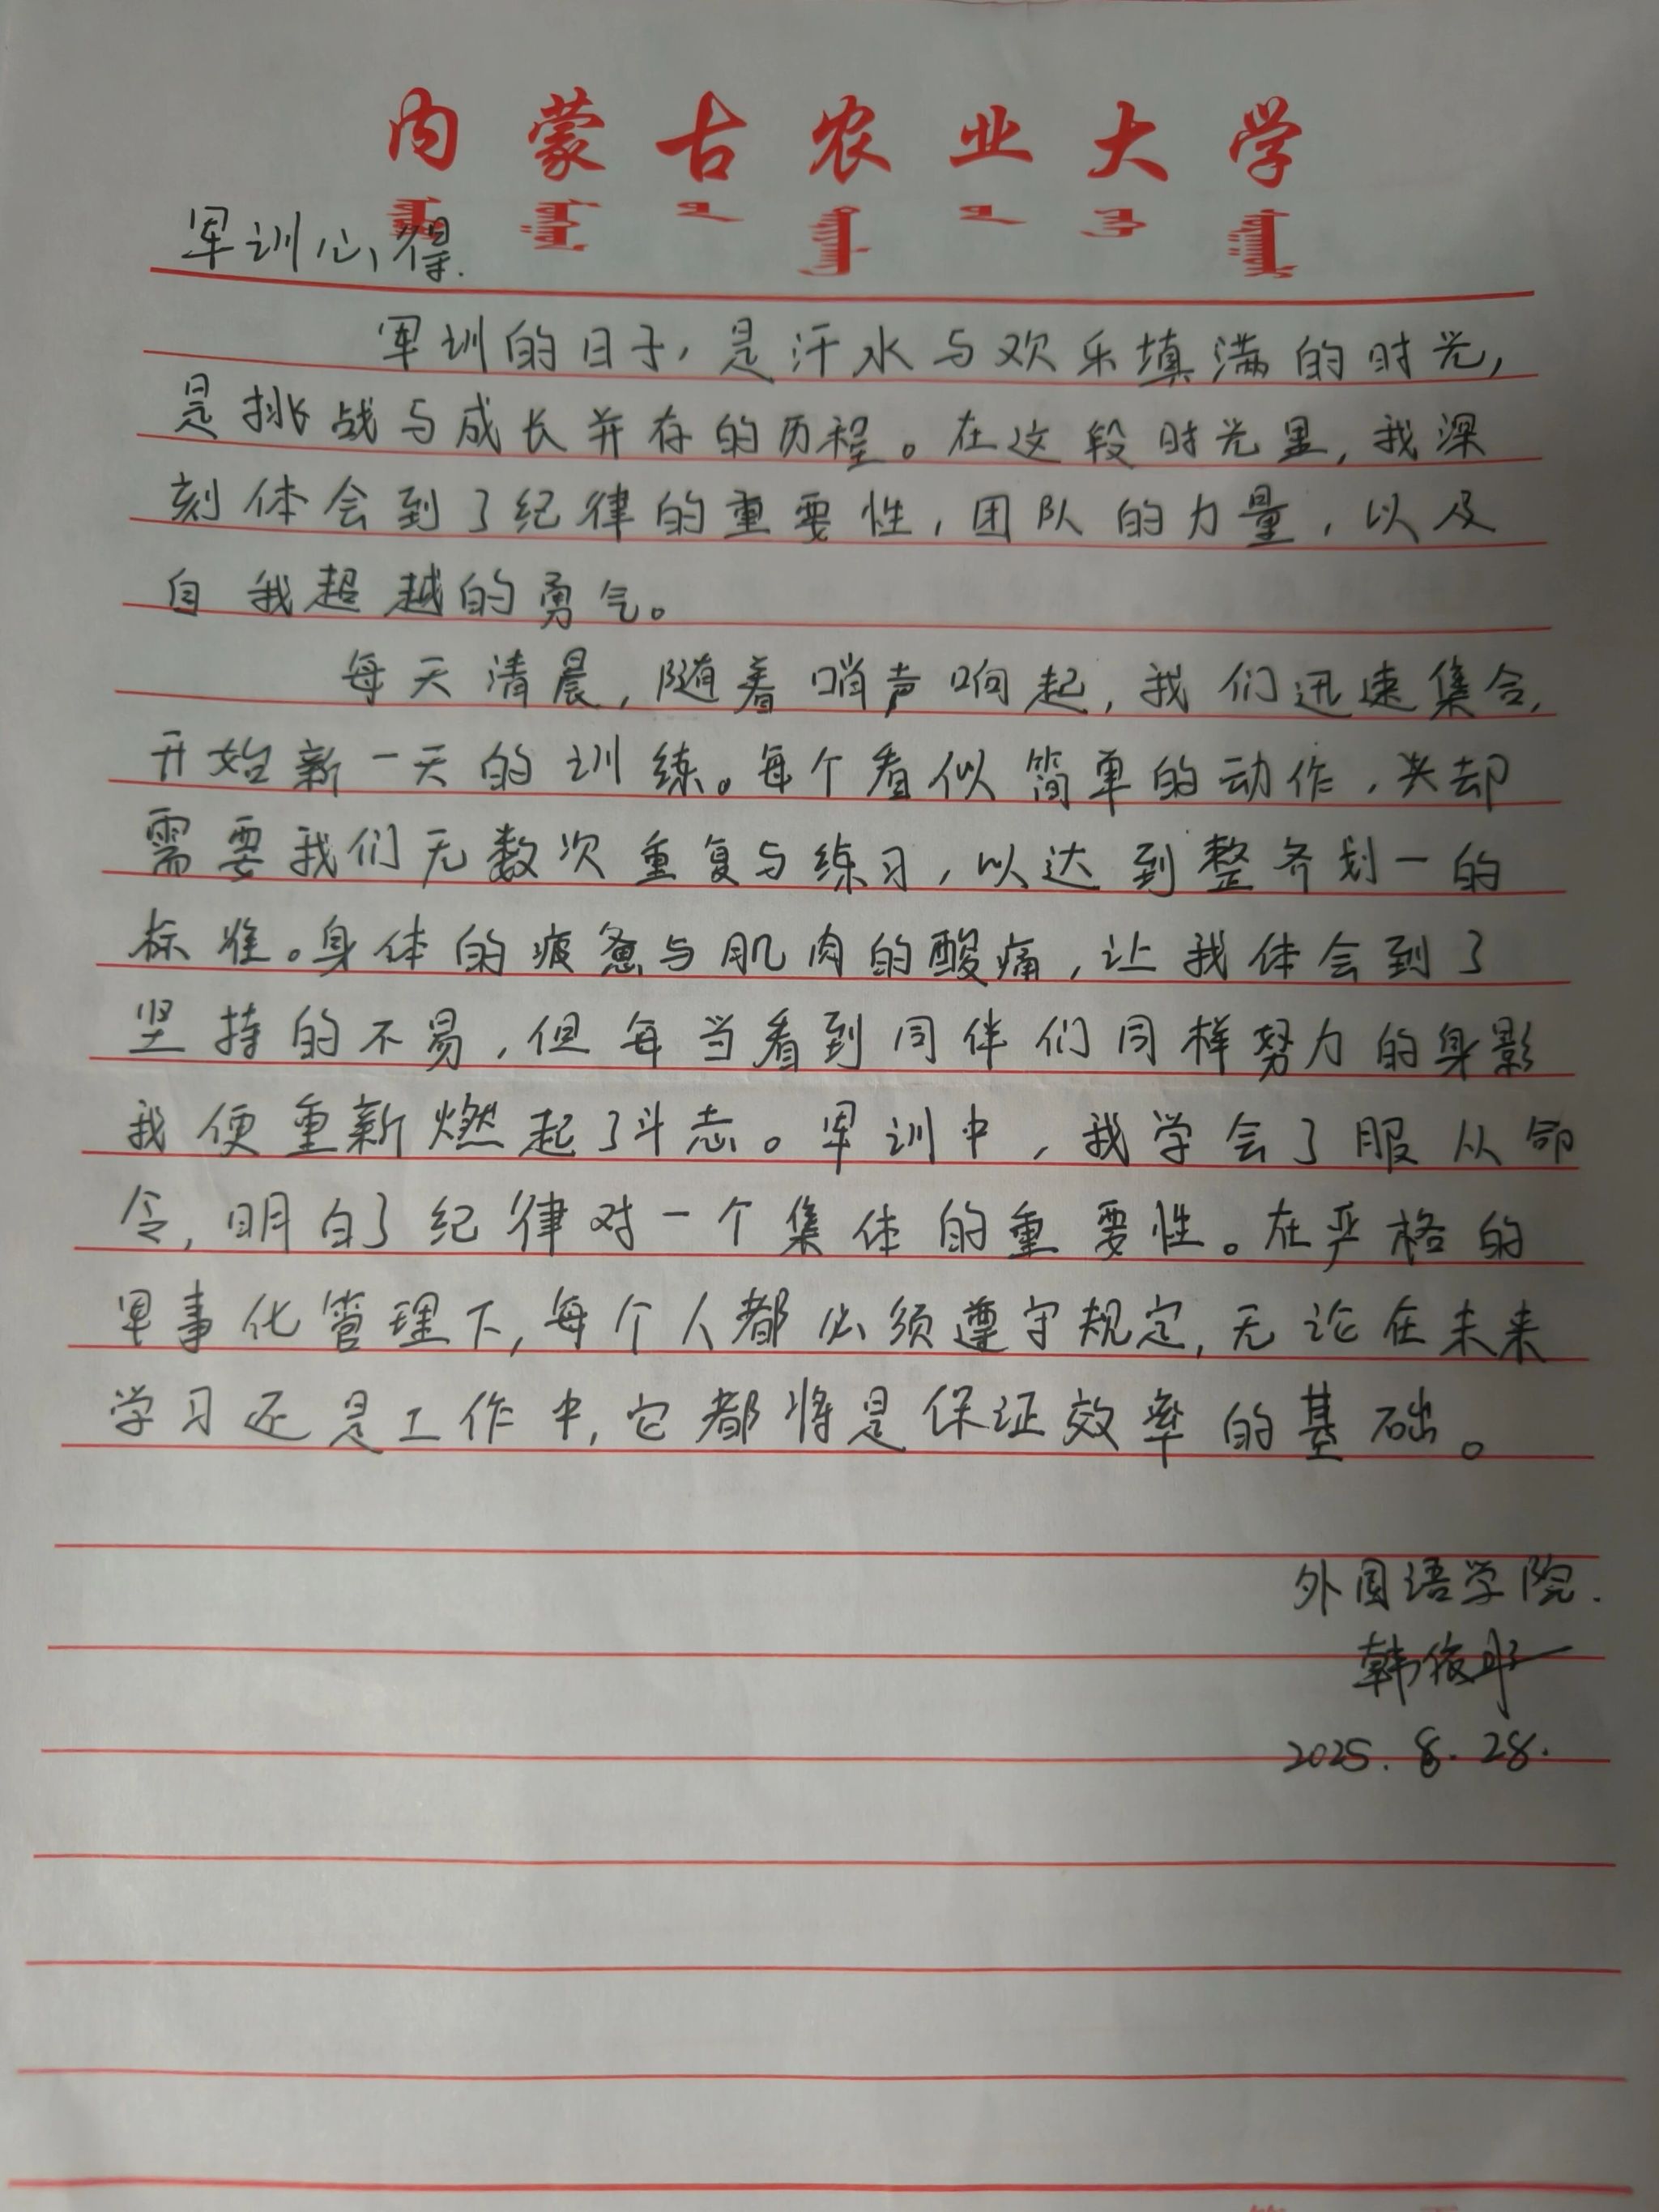 内蒙古农业大学
军训心得.
军训的日子，是汗水与欢乐填满的时光，
是挑战与成长并存的历程。在这段时光里，我深
刻体会到了纪律的重要性，团队的力量，以及
自我超越的勇气。
每天清晨，随着哨声响起，我们迅速集合，
开始新一天的训练。每个看似简单的动作，实却
需要我们无数次重复与练习，以达到整齐划一的
标准。身体的疲惫与肌肉的酸痛，让我体会到了
坚持的不易，但每当看到同伴们同样努力的身影
我便重新燃起了斗志。军训中，我学会了服从命
令，明白了纪律对一个集体的重要性。在严格的
军事化管理下，每个人都必须遵守规定，无论在未来
学习还是工作中，它都将是保证效率的基础。
外国语学院.
韩俊
2025.8.28.